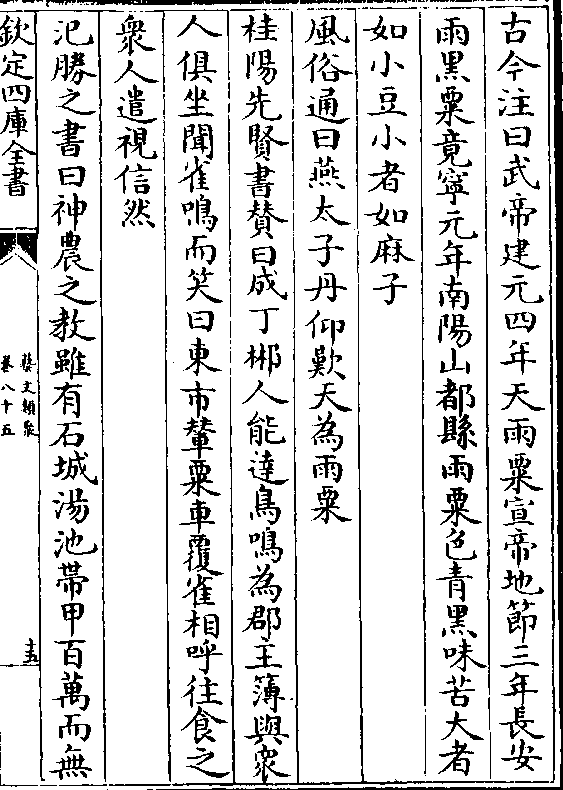 古今注曰武帝建元四年天雨粟宣帝地節三年長安
雨黑粟竟寧元年南陽山都縣雨粟色青黑味苦大者
如小豆小者如麻子
風俗通曰燕太子丹仰歎天為雨粟
桂陽先賢書賛曰成丁郴人能達鳥鳴為郡主簿與衆
人俱坐聞雀鳴而笑曰東市輦粟車覆雀相呼往食之
衆人遣視信然
氾勝之書曰神農之教雖有石城湯池帶甲百萬而無
欽定四庫全書
藝文類聚
卷八十五
十五